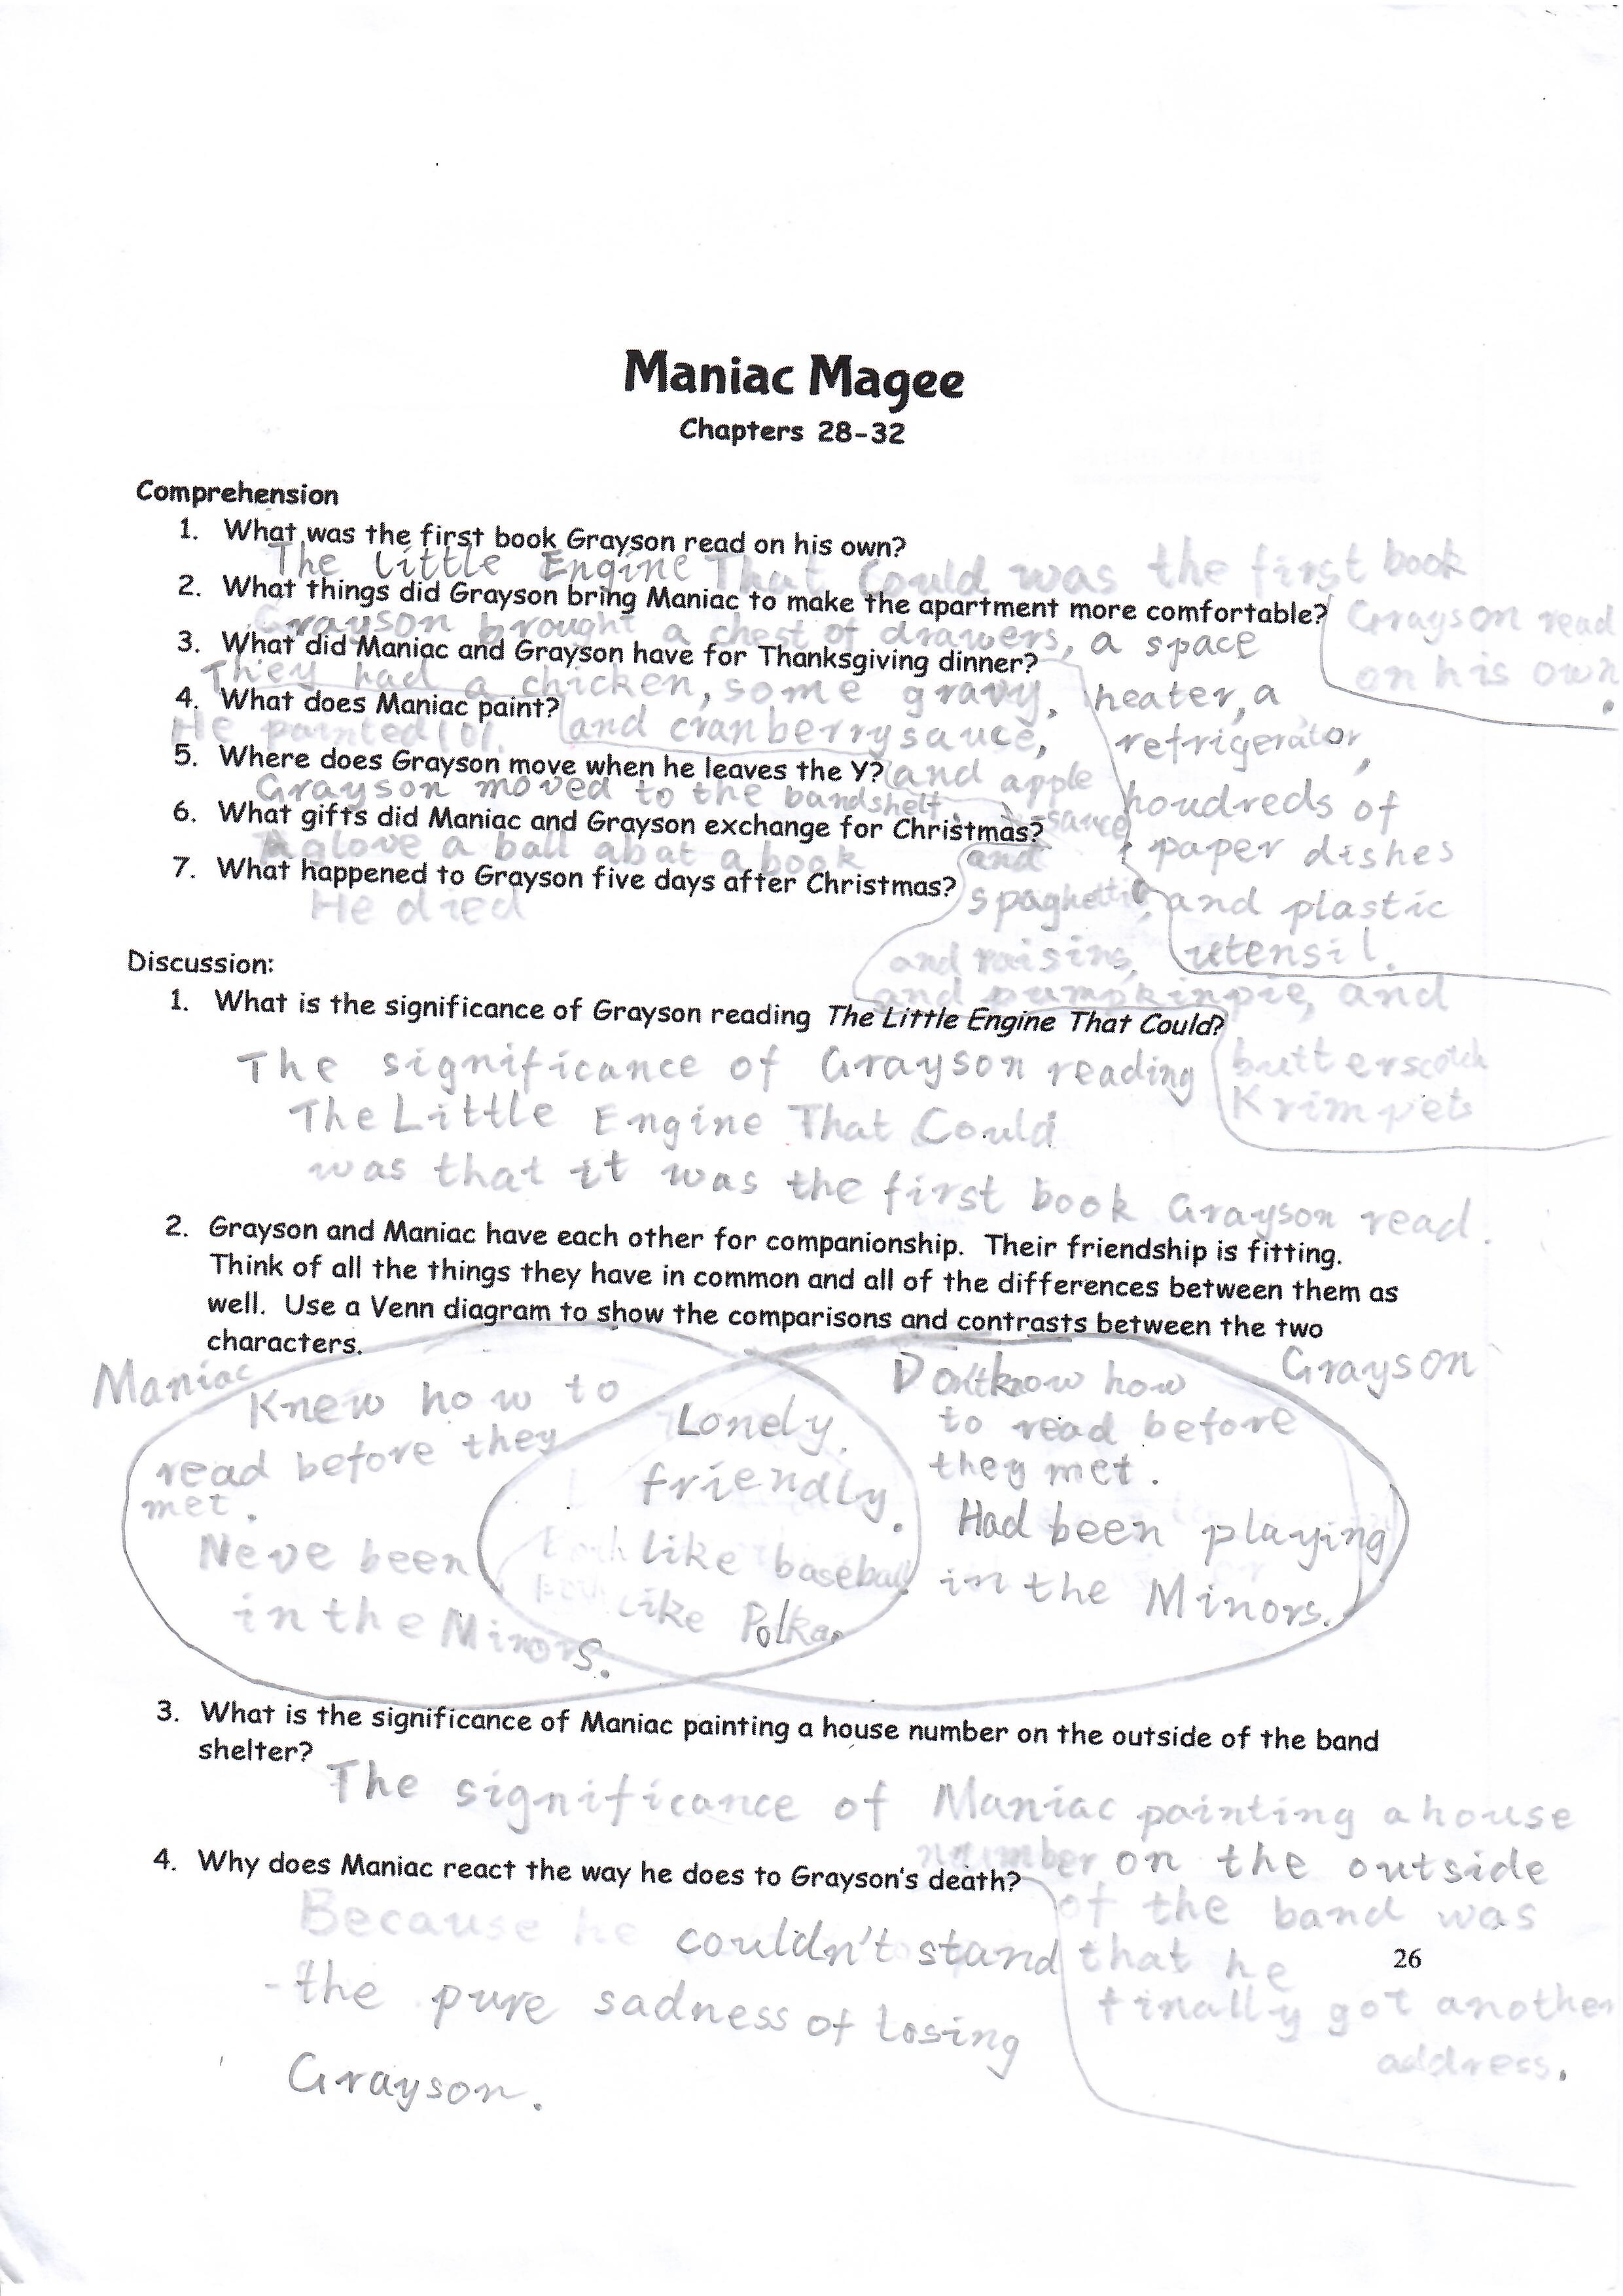 Maniac Magee
Chapters 28-32
Comprehension
1. What was the first book Grayson read on his own?
The Little Engine That Could was the first book
Grayson read
on his own.
2. What things did Grayson bring Maniac to make the apartment more comfortable?
Grayson brought a chest of drawers, a space
heater, a
refrigerator,
houdreds of
paper dishes
and plastic
utensil.
3. What did Maniac and Grayson have for Thanksgiving dinner?
They had a chicken, some gravy,
and cranberry sauce,
and apple
sauce
and
spaghetti
and raisins,
and pumpkin pie, and
butterscotch
Krimpets
4. What does Maniac paint?
He painted 101.
5. Where does Grayson move when he leaves the Y?
Grayson moved to the bandshell.
6. What gifts did Maniac and Grayson exchange for Christmas?
A glove a ball a bat a book
7. What happened to Grayson five days after Christmas?
He died
Discussion:
1. What is the significance of Grayson reading The Little Engine That Could?
The significance of Grayson reading
The Little Engine That Could
was that it was the first book Grayson read.
2. Grayson and Maniac have each other for companionship. Their friendship is fitting.
Think of all the things they have in common and all of the differences between them as
well. Use a Venn diagram to show the comparisons and contrasts between the two
characters.
Maniac
Knew how to
read before they
met.
Neve been
in the Minors.
Lonely.
friendly.
like baseball
like Polka.
Grayson
Don't know how
to read before
they met.
Had been playing
in the Minors.
3. What is the significance of Maniac painting a house number on the outside of the band
shelter?
The significance of Maniac painting a house
number on the outside
of the band was
that he
finally got another
address.
4. Why does Maniac react the way he does to Grayson's death?
Because he couldn't stand
the pure sadness of losing
Grayson.
26